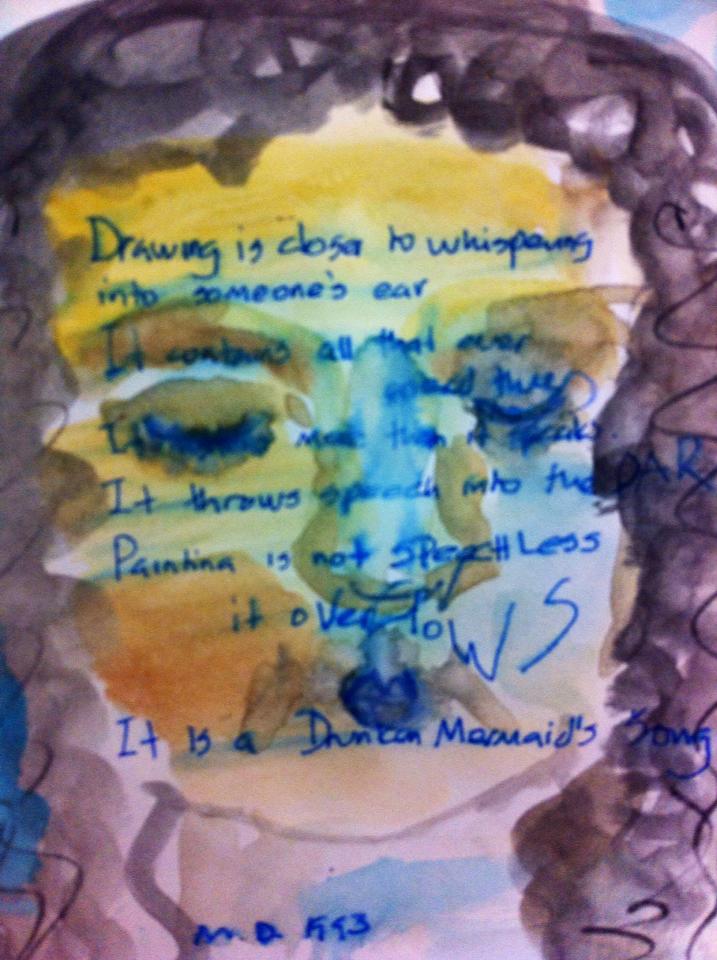 Drawing is closer to whispering
into someone's ear
It contains all that ever
It more than it speaks.
It throws speech into the DARK
Painting is not speechLess
it overfloWS
It is a Drunken Mermaid's Song